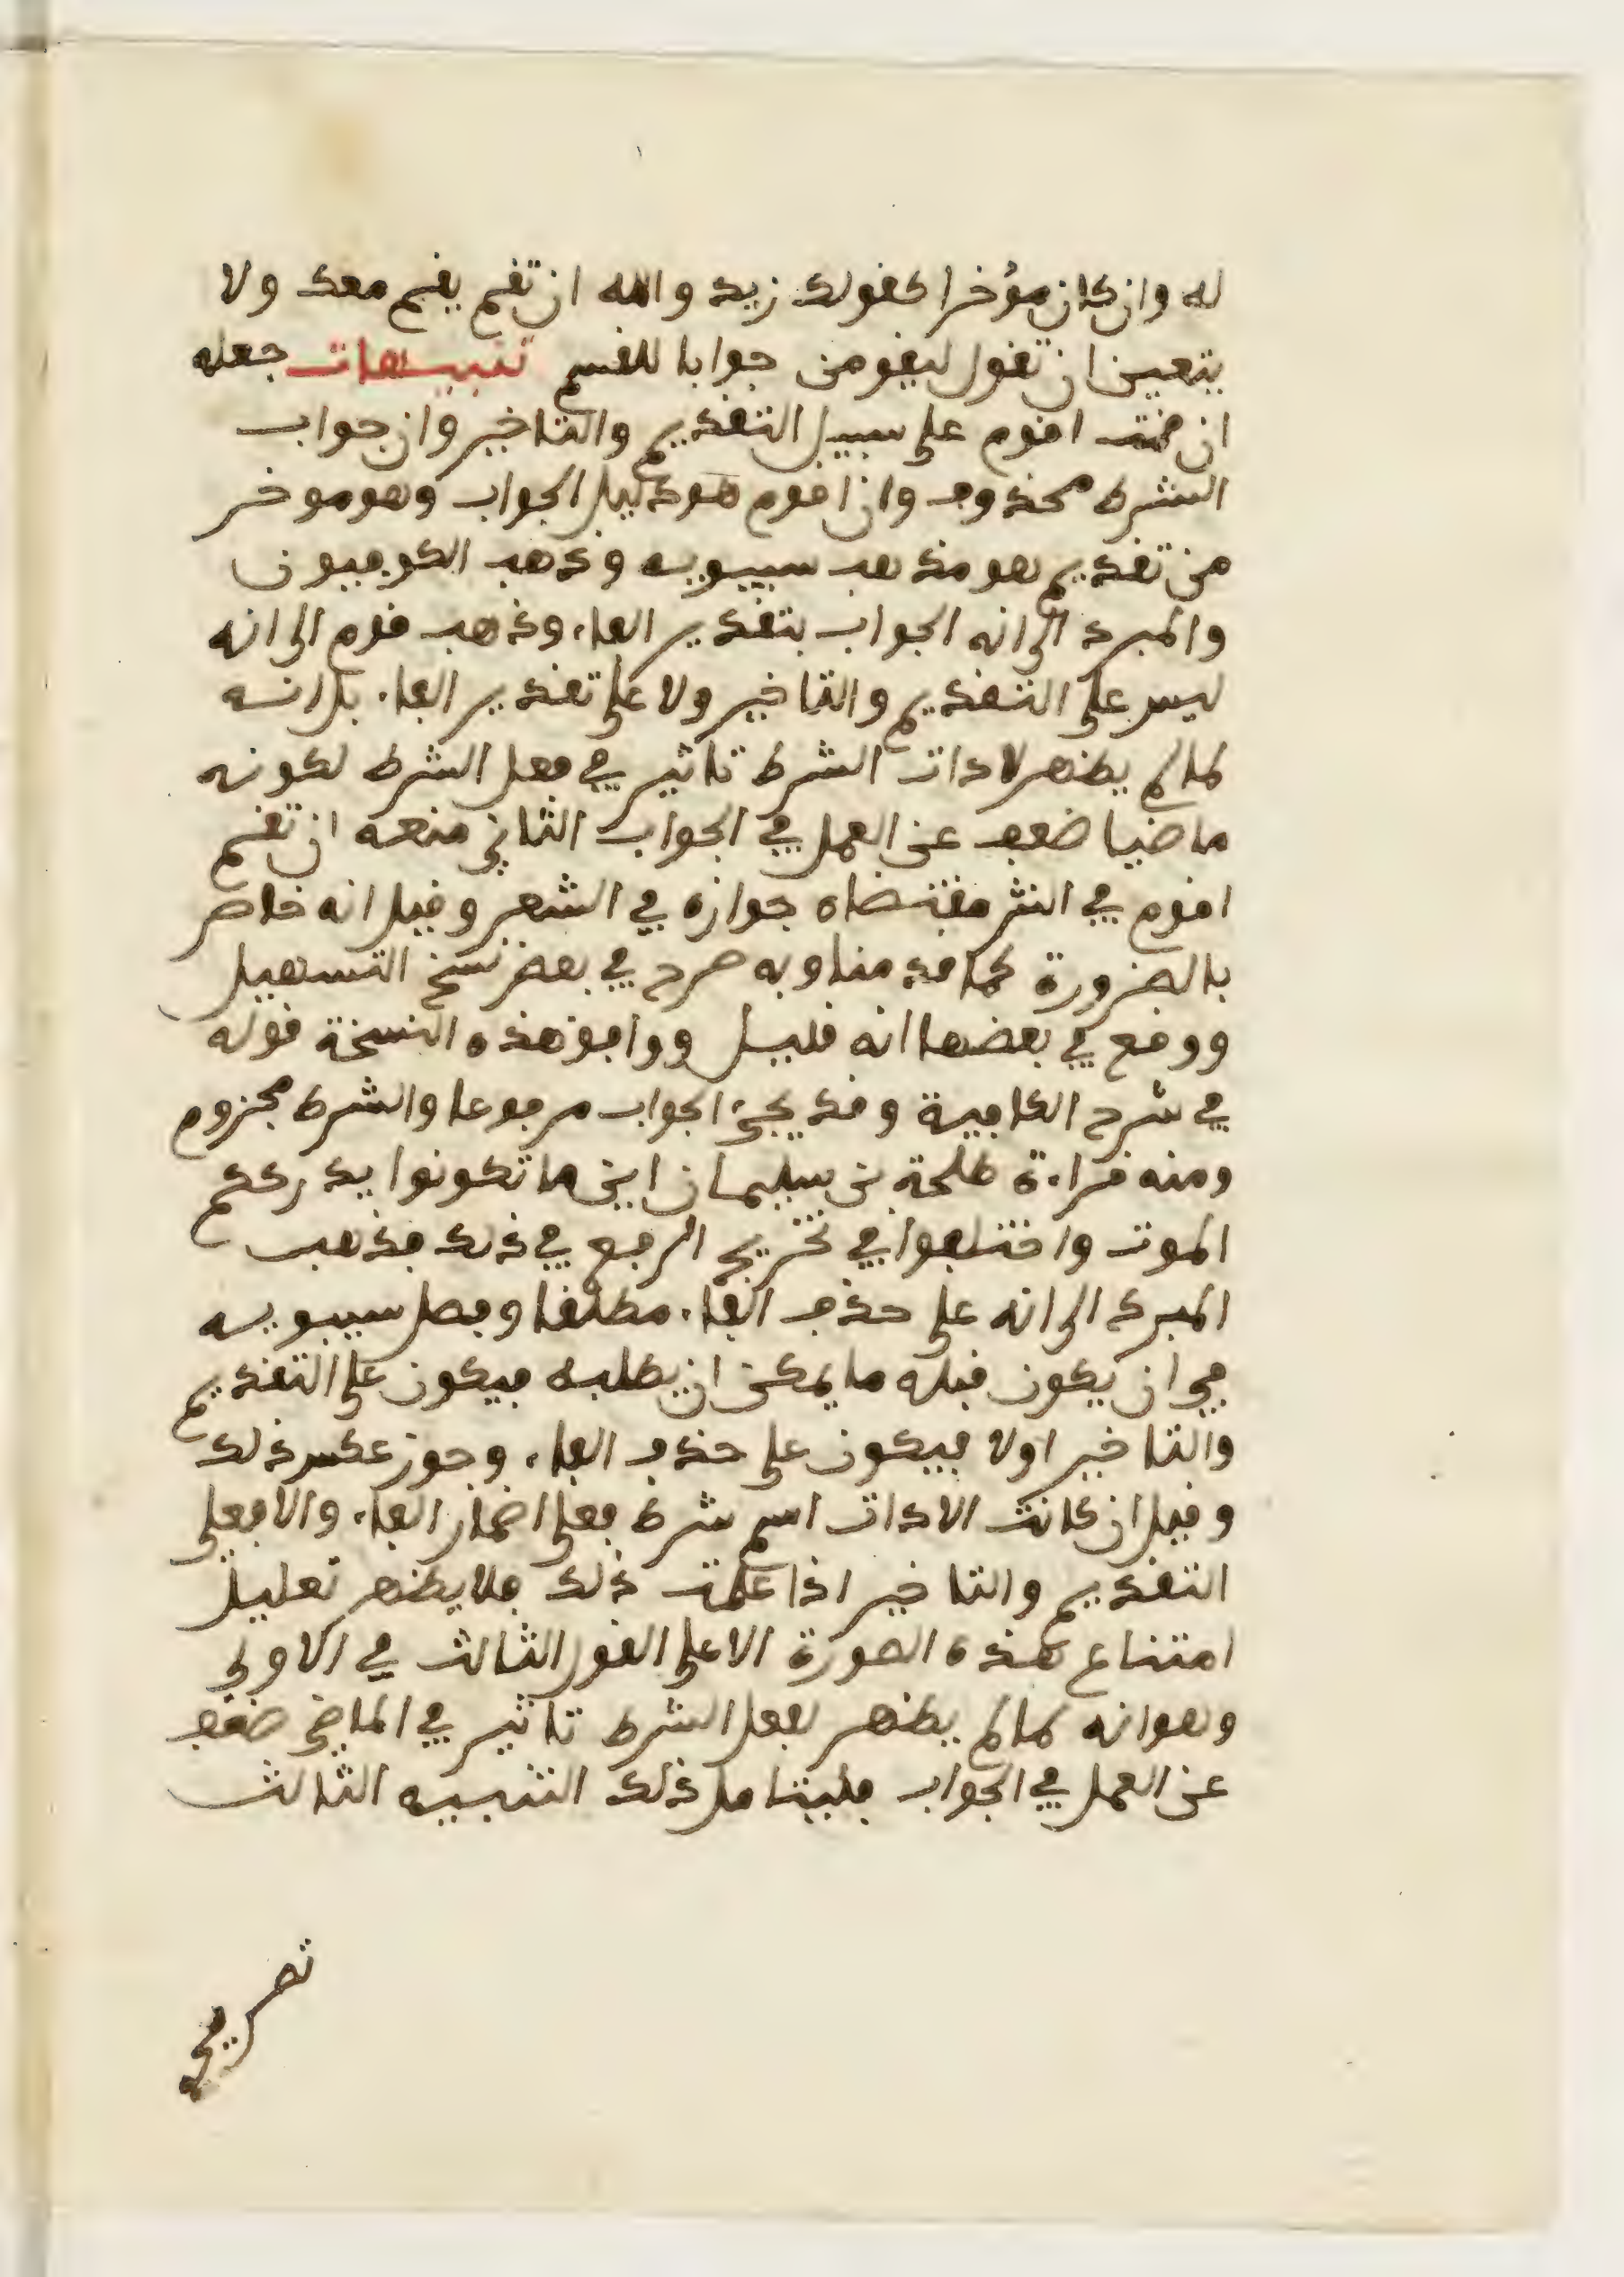 له وان كان مؤخرا كقولك زيد والله ان تقم يقم معك ولا
يتعين ان تقول ليقومن جوابا للقسم تنبيهات جعله
ان قمت اقوم على سبيل التقديم والتاخير وان جواب
الشرط محذوف وان اقوم هو دليل الجواب وهو موخر
من تقديم هو مذهب سيبويه وذهب الكوفيون
والمبرد الى انه الجواب بتقدير الفاء وذهب قوم الى انه
ليس على التقديم والتاخير ولا على تقدير الفاء بل انه
لما لم يظهر لادات الشرط تاثير في فعل الشرط لكونه
ماضيا ضعف عن العمل في الجواب الثاني منعه ان تقم
اقوم في النثر مقتضاه جوازه في الشعر وقيل انه خاص
بالضرورة كما قدمنا وبه صرح في بعض نسخ التسهيل
ووقع في بعضها انه قليل ووافق هذه النسخة قوله
في شرح الكافية وقد يجيء الجواب مرفوعا والشرط مجزوم
ومنه قراءة طلحة بن سليمان اين ما تكونوا يدرككم
الموت واختلفوا في تخريج الرفع في ذلك فذهب
المبرد الى انه على حذف الفاء مطلقا وفصل سيبويه
في ان يكون قبله ما يمكن ان يطلبه فيكون على التقديم
والتاخير اولا فيكون على حذف الفاء وجوز عكس ذلك
وقيل ان كانت الادات اسم شرط فعلى اضمار الفاء والا فعلى
التقديم والتاخير اذا علمت ذلك فلا يظهر تعليل
امتناع هذه الصورة الا على القول الثالث في الاولى
وهو انه لما لم يظهر لفعل الشرط تاثير في الماضي ضعف
عن العمل في الجواب فليتامل ذلك التنبيه الثالث
تصريحي